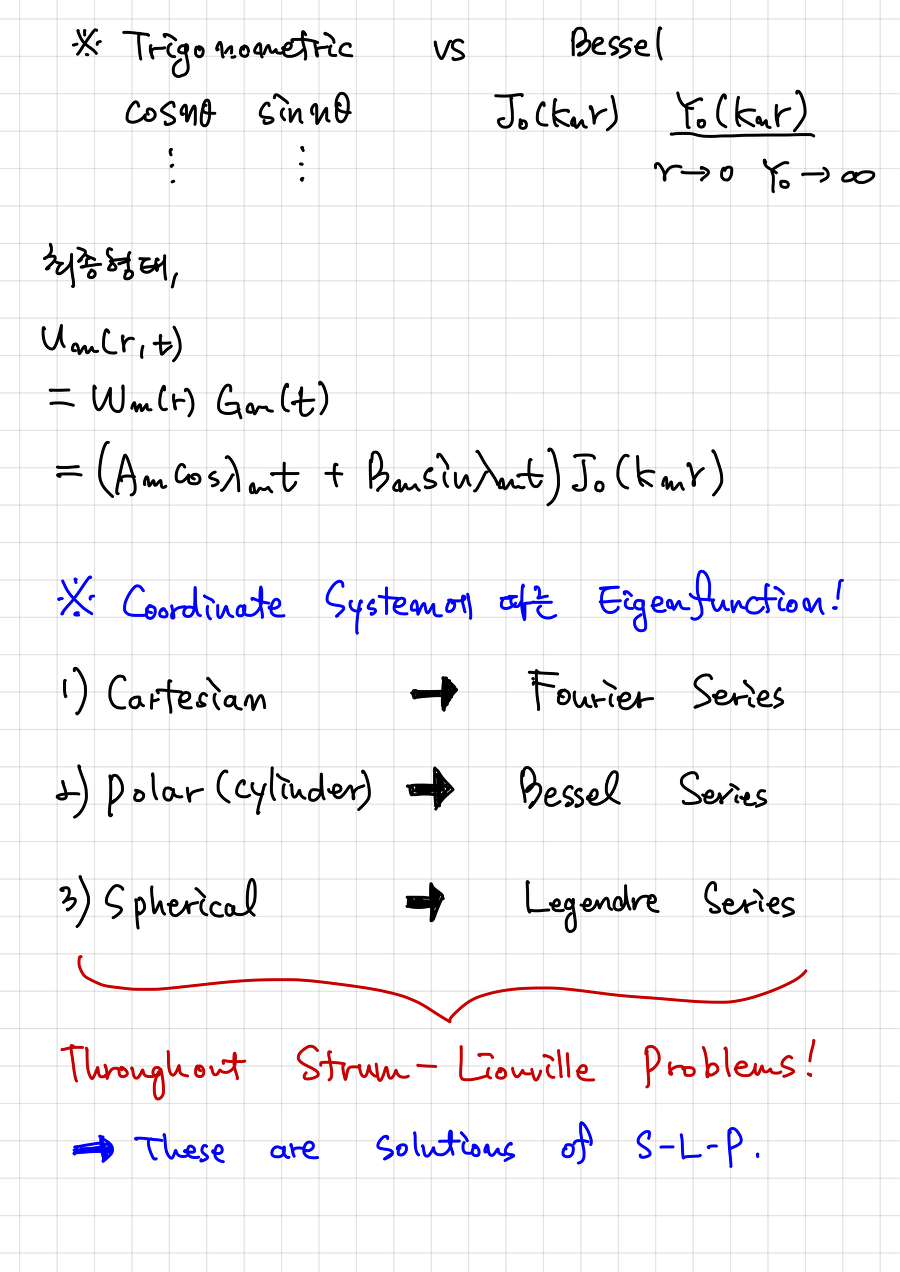 ※ Trigonometric vs Bessel
cosnθ sinnθ J₀(kₘr) Y₀(kₘr)
⋮ ⋮ r→0 Y₀→∞
최종형태,
Uₘ(r,t)
= Wₘ(r) Gₘ(t)
= (Aₘcosλₘt + Bₘsinλₘt) J₀(kₘr)
※ Coordinate System에 따른 Eigenfunction!
1) Cartesian → Fourier Series
2) Polar (cylinder) → Bessel Series
3) Spherical → Legendre Series
Throughout Strum-Liouville Problems!
⇒ These are solutions of S-L-P.